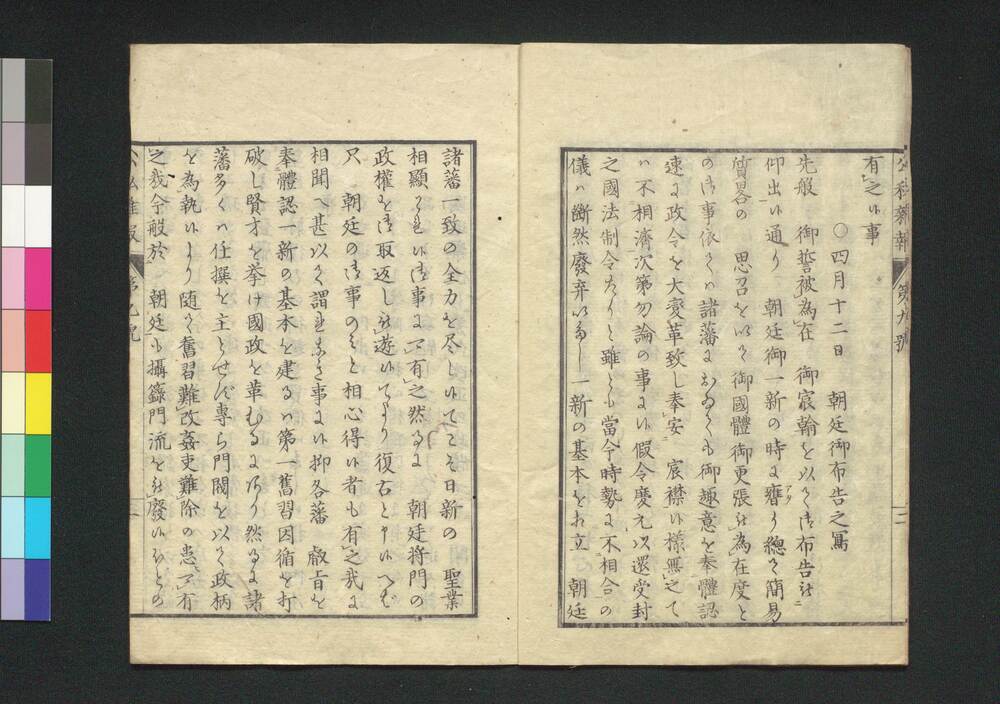 公私雜報 第九號 二
有之候事
○四月十二日 朝廷御布告之寫
先般 御誓被為在 御宸翰を以て御布告被
仰出候通り 朝廷御一新の時に膺り總て簡易
アタ
質畧の 思召を以て御國體御更張被為在度と
の御事依ては諸藩におゐても御趣意を奉體認
速に政令を大変革致し奉安 宸襟候様無之て
ハ不相濟次第勿論の事に候假令慶元以還受封
之國法制令たりと雖とも當今時勢に不相合の
儀ハ斷然廢弃いたし一新の基本を相立 朝廷
諸藩一致の全力を尽し候てこそ日新の 聖業
相顯られ候御事に可有之然るに 朝廷将門の
政權を御取返し被遊候てより復古と申候へば
只 朝廷の御事のみと相心得候者も有之哉に
相聞へ甚以て謂れなき事に候抑各藩 叡旨を
奉體認一新の基本を建るハ第一舊習因循を打
破し賢才を挙け國政を革むるにあり然るに諸
藩多くハ任撰を主とせず專ら門閥を以て政柄
を為執候より随て舊習難改姦吏難除の患可有
之哉今般於 朝廷も攝籙門流を被廢候ほとの
公私雜報 第九號